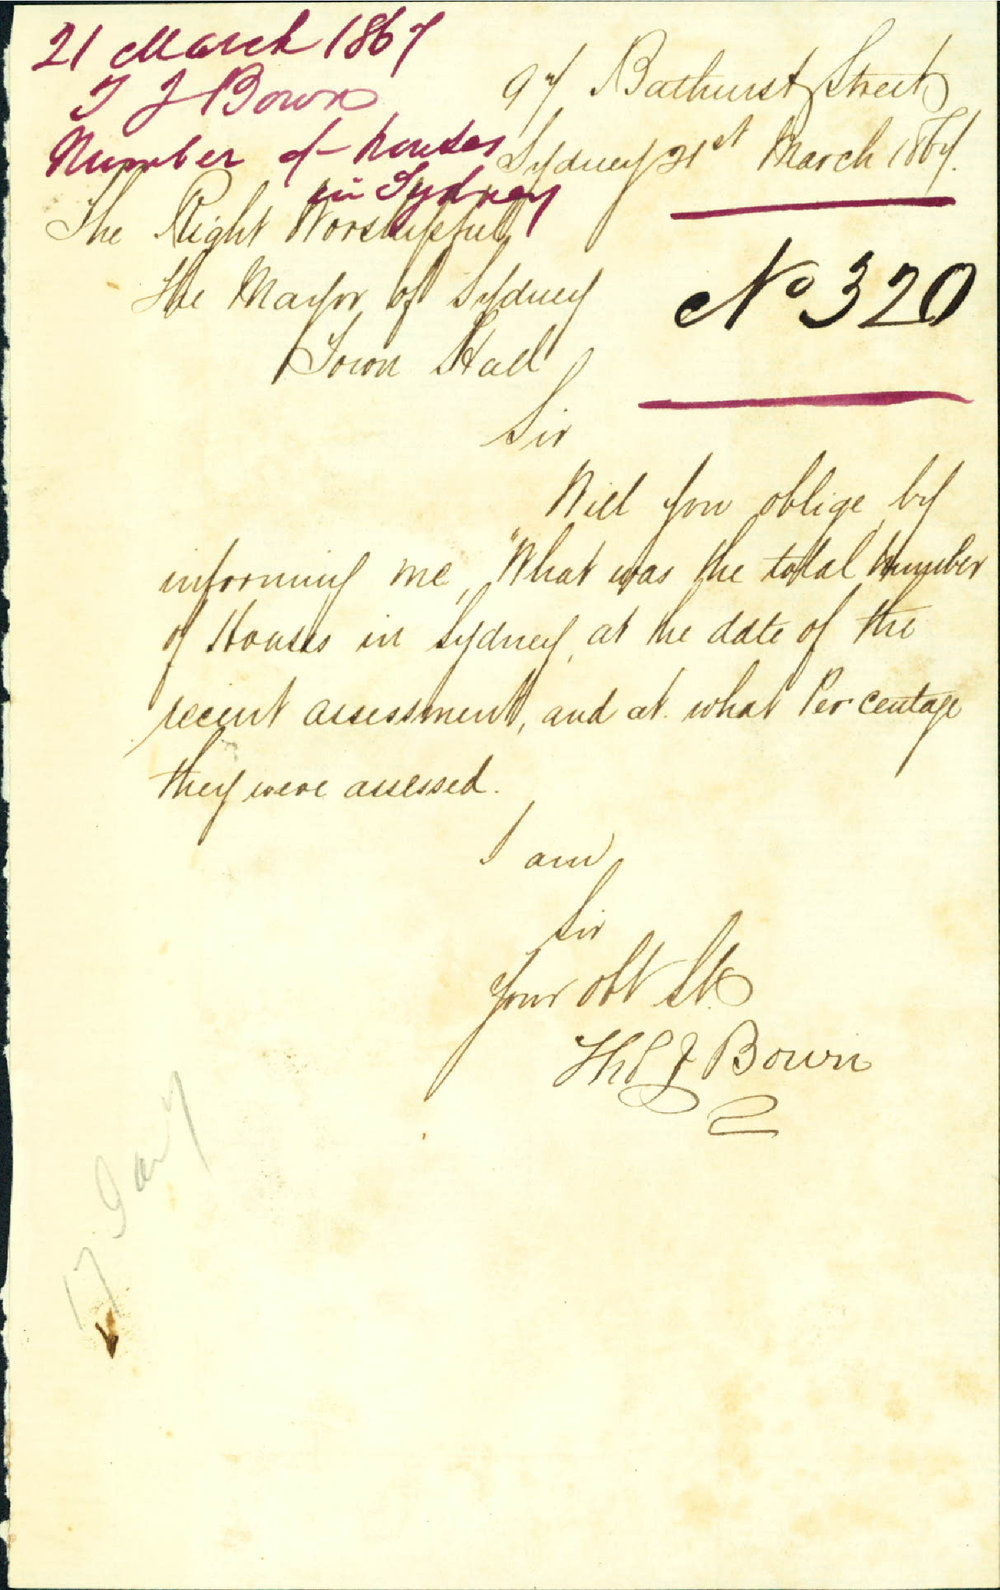 21 March 1867
T J Bown
Number of houses
in Sydney
97 Bathurst Street
Sydney 21st March 1867.
No 320
The Right Worshipful
The Mayor of Sydney
Town Hall
Sir
Will you oblige by
informing me, "What was the total number
of Houses in Sydney, at the date of the
recent assessment, and at what Per centage
they were assessed.
I am
Sir
Your obt St
Thos J Bown
17